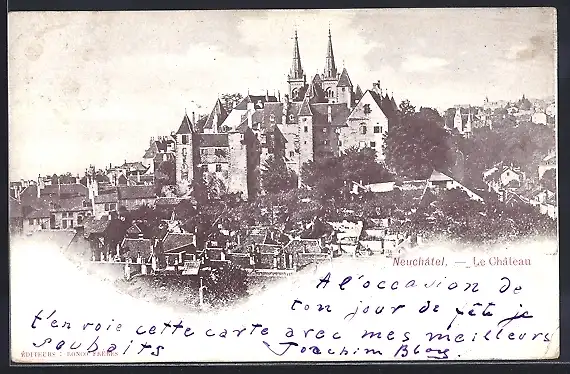 Neuchâtel, — Le Château
A l'occasion de
ton jour de fête je
t'en voie cette carte avec mes meilleurs
souhaits Joachim
ÉDITEURS : FRÈRES